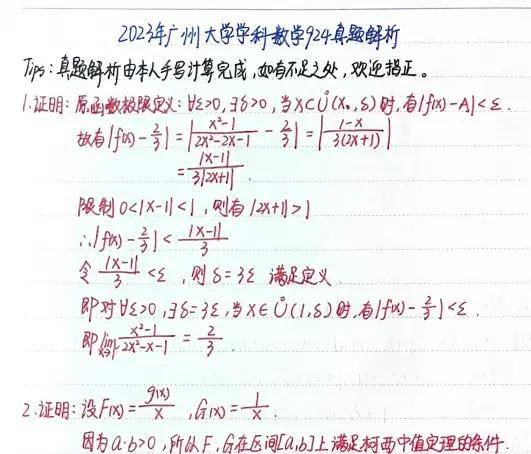 2023年广州大学学科数学924真题解析
Tips：真题解析由本人手写计算完成，如有不足之处，欢迎指正。
1.证明：原函数极限定义：∀ε>0，∃δ>0，当x⊂Ů(x₀,δ)时，有|f(x)-A|<ε.
故有|f(x)-2/3| = |(x²-1)/(2x²-2x-1) - 2/3| = |(1-x)/(3(2x+1))|
= |x-1|/(3|2x+1|).
限制0<|x-1|<1，则有|2x+1|>1
∴|f(x)-2/3| < |x-1|/3
令|x-1|/3<ε，则δ=3ε 满足定义.
即对∀ε>0，∃δ=3ε，当x∈Ů(1,δ)时，有|f(x)-2/3|<ε.
即lim x→1 (x²-1)/(2x²-x-1) = 2/3.
2.证明：设F(x)=g(x)/x，G(x)=1/x.
因为a·b>0，所以F，G在区间[a,b]上满足柯西中值定理的条件.